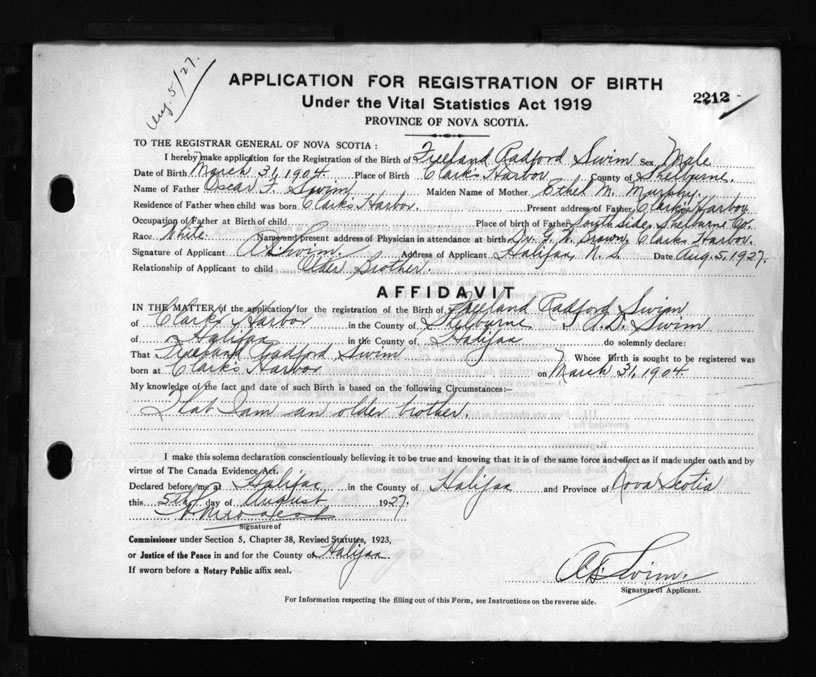 Aug. 5/27.
APPLICATION FOR REGISTRATION OF BIRTH
2212
Under the Vital Statistics Act 1919
PROVINCE OF NOVA SCOTIA.
TO THE REGISTRAR GENERAL OF NOVA SCOTIA :
I hereby make application for the Registration of the Birth of Freeland Radford Swim Sex Male
Date of Birth March 31, 1904. Place of Birth Clark's Harbor County of Shelburne.
Name of Father Oscar F. Swim Maiden Name of Mother Ethel M. Murphy.
Residence of Father when child was born Clark's Harbor. Present address of Father Clark's Harbor
Occupation of Father at Birth of child Place of Birth of Father South Side, Shelburne Co.
Race White. Name and present address of Physician in attendance at birth Dr. Brown, Clark's Harbor.
Signature of Applicant Swim. Address of Applicant Halifax, N. S. Date Aug. 5, 1927.
Relationship of Applicant to child Older Brother.
AFFIDAVIT
IN THE MATTER of the application for the registration of the Birth of Freeland Radford Swim
of Clark's Harbor in the County of Shelburne I A.D. Swim
of Halifax in the County of Halifax do solemnly declare:
That Freeland Radford Swim Whose Birth is sought to be registered was
born at Clark's Harbor on March 31, 1904.
My knowledge of the fact and date of such Birth is based on the following Circumstances:—
That I am an older brother.
I make this solemn declaration conscientiously believing it to be true and knowing that it is of the same force and effect as if made under oath and by
virtue of The Canada Evidence Act.
Declared before me at Halifax in the County of Halifax and Province of Nova Scotia
this 5th day of August 1927.
Signature of
Commissioner under Section 5, Chapter 38, Revised Statutes, 1923,
or Justice of the Peace in and for the County of Halifax
If sworn before a Notary Public affix seal.
Swim.
Signature of Applicant.
For Information respecting the filling out of this Form, see Instructions on the reverse side.